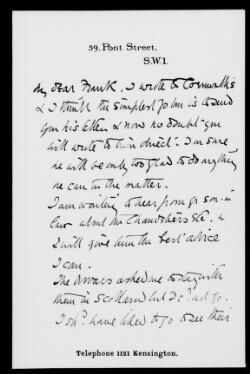 59, Pont Street,
S.W.1.
My dear Frank. I wrote to Cornwallis
& I think the simplest plan is to send
you his letter & now no doubt you
will write to him direct. I'm sure
he will be only too glad to do anything
he can in the matter.
I am waiting to hear from yr son-in-
law about the Chaundlers &c. &
I will give him the best advice
I can.
The asked me to stay with
them in Scotland but I can't go.
I shd. have liked to go to see their
Telephone 1121 Kensington.